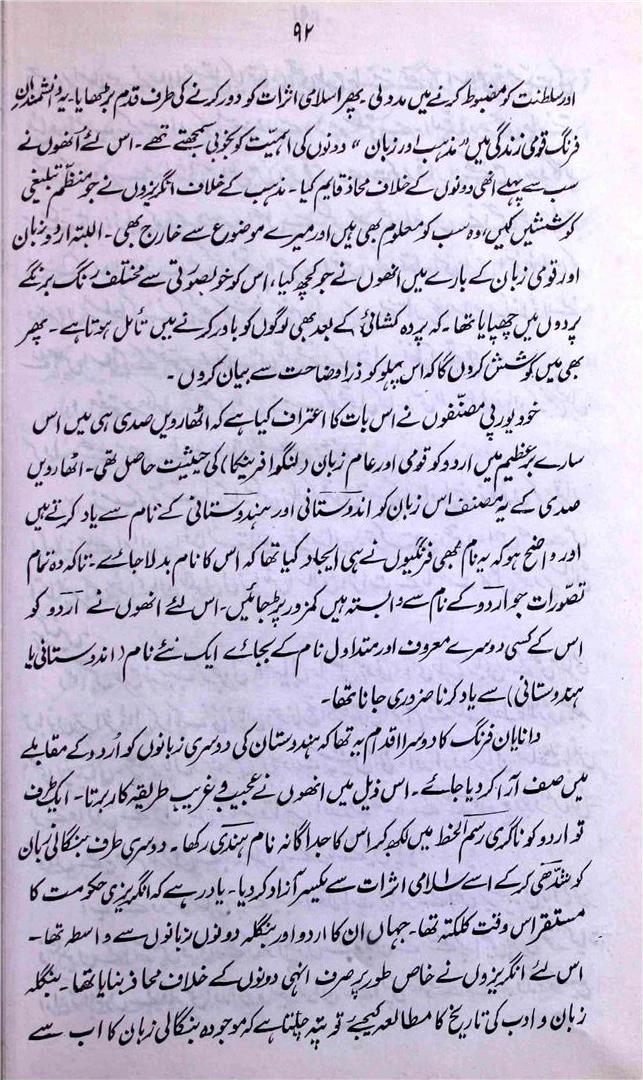 ۹۲
اور سلطنت کو مضبوط کرنے میں مدد لی۔ پھر اسلامی اثرات کو دور کرنے کی طرف قدم بڑھایا۔ یہ دانشمندانِ
فرنگ قومی زندگی میں "مذہب اور زبان" دونوں کی اہمیت کو بخوبی سمجھتے تھے۔ اس لئے اُنھوں نے
سب سے پہلے انھی دونوں کے خلاف محاذ قایم کیا۔ مذہب کے خلاف انگریزوں نے جو منظّم تبلیغی
کوششیں کیں، وہ سب کو معلوم بھی ہیں اور میرے موضوع سے خارج بھی۔ البتہ اردو زبان
اور قومی زبان کے بارے میں انھوں نے جو کچھ کیا، اس کو خوبصورتی سے مختلف رنگ برنگے
پردوں میں چھپایا تھا۔ کہ پردہ کشائی کے بعد بھی لوگوں کو باور کرنے میں تأمل ہوتا ہے۔ پھر
بھی میں کوشش کروں گا کہ اس پہلو کو ذرا وضاحت سے بیان کروں۔
خود یورپی مصنّفوں نے اس بات کا اعتراف کیا ہے کہ اٹھارویں صدی ہی میں اس
سارے برِّعظیم میں اردو کو قومی اور عام زبان (لنگوا فرینکا) کی حیثیت حاصل تھی۔ اٹھارویں
صدی کے یہ مصنف اس زبان کو اندوستانی اور ہندوستانی کے نام سے یاد کرتے ہیں
اور واضح ہو کہ یہ نام بھی فرنگیوں نے ہی ایجاد کیا تھا کہ اس کا نام بدلا جائے۔ تاکہ وہ تمام
تصوّرات جو اردو کے نام سے وابستہ ہیں کمزور پڑ جائیں۔ اس لئے انھوں نے اردو کو
اس کے کسی دوسرے معروف اور متداول نام کے بجائے ایک نئے نام (اندوستانی یا
ہندوستانی) سے یاد کرنا ضروری جانا تھا۔
دانایانِ فرنگ کا دوسرا اقدام یہ تھا کہ ہندوستان کی دوسری زبانوں کو اُردو کے مقابلے
میں صف آرا کر دیا جائے۔ اس ذیل میں انھوں نے عجیب و غریب طریقہ کار برتا۔ ایک طرف
تو اردو کو ناگری رسم الخط میں لکھ کر اس کا جداگانہ نام ہندی رکھا۔ دوسری طرف بنگالی زبان
کو شدّھی کر کے اسے اسلامی اثرات سے یکسر آزاد کر دیا۔ یاد رہے کہ انگریزی حکومت کا
مستقر اس وقت کلکتہ تھا۔ جہاں ان کا اردو اور بنگلہ دونوں زبانوں سے واسطہ تھا۔
اس لئے انگریزوں نے خاص طور پر صرف انہی دونوں کے خلاف محاذ بنایا تھا۔ بنگلہ
زبان و ادب کی تاریخ کا مطالعہ کیجئے تو پتہ چلتا ہے کہ موجودہ بنگالی زبان کا اب سے